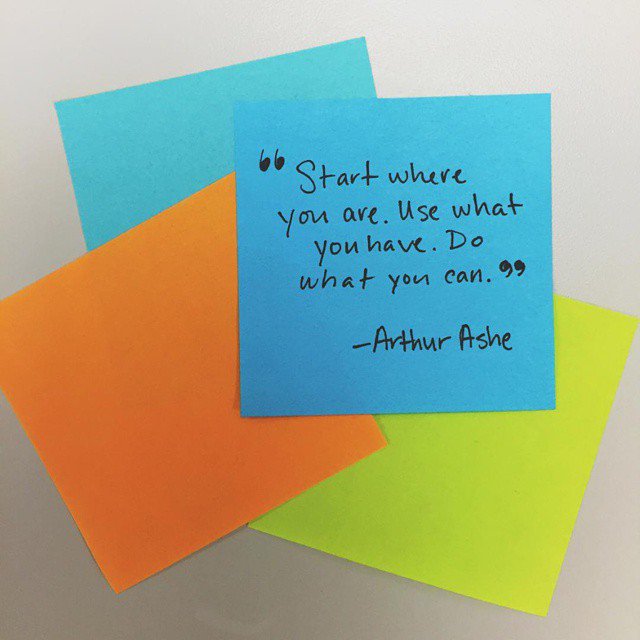 “Start where
you are. Use what
you have. Do
what you can.”
—Arthur Ashe